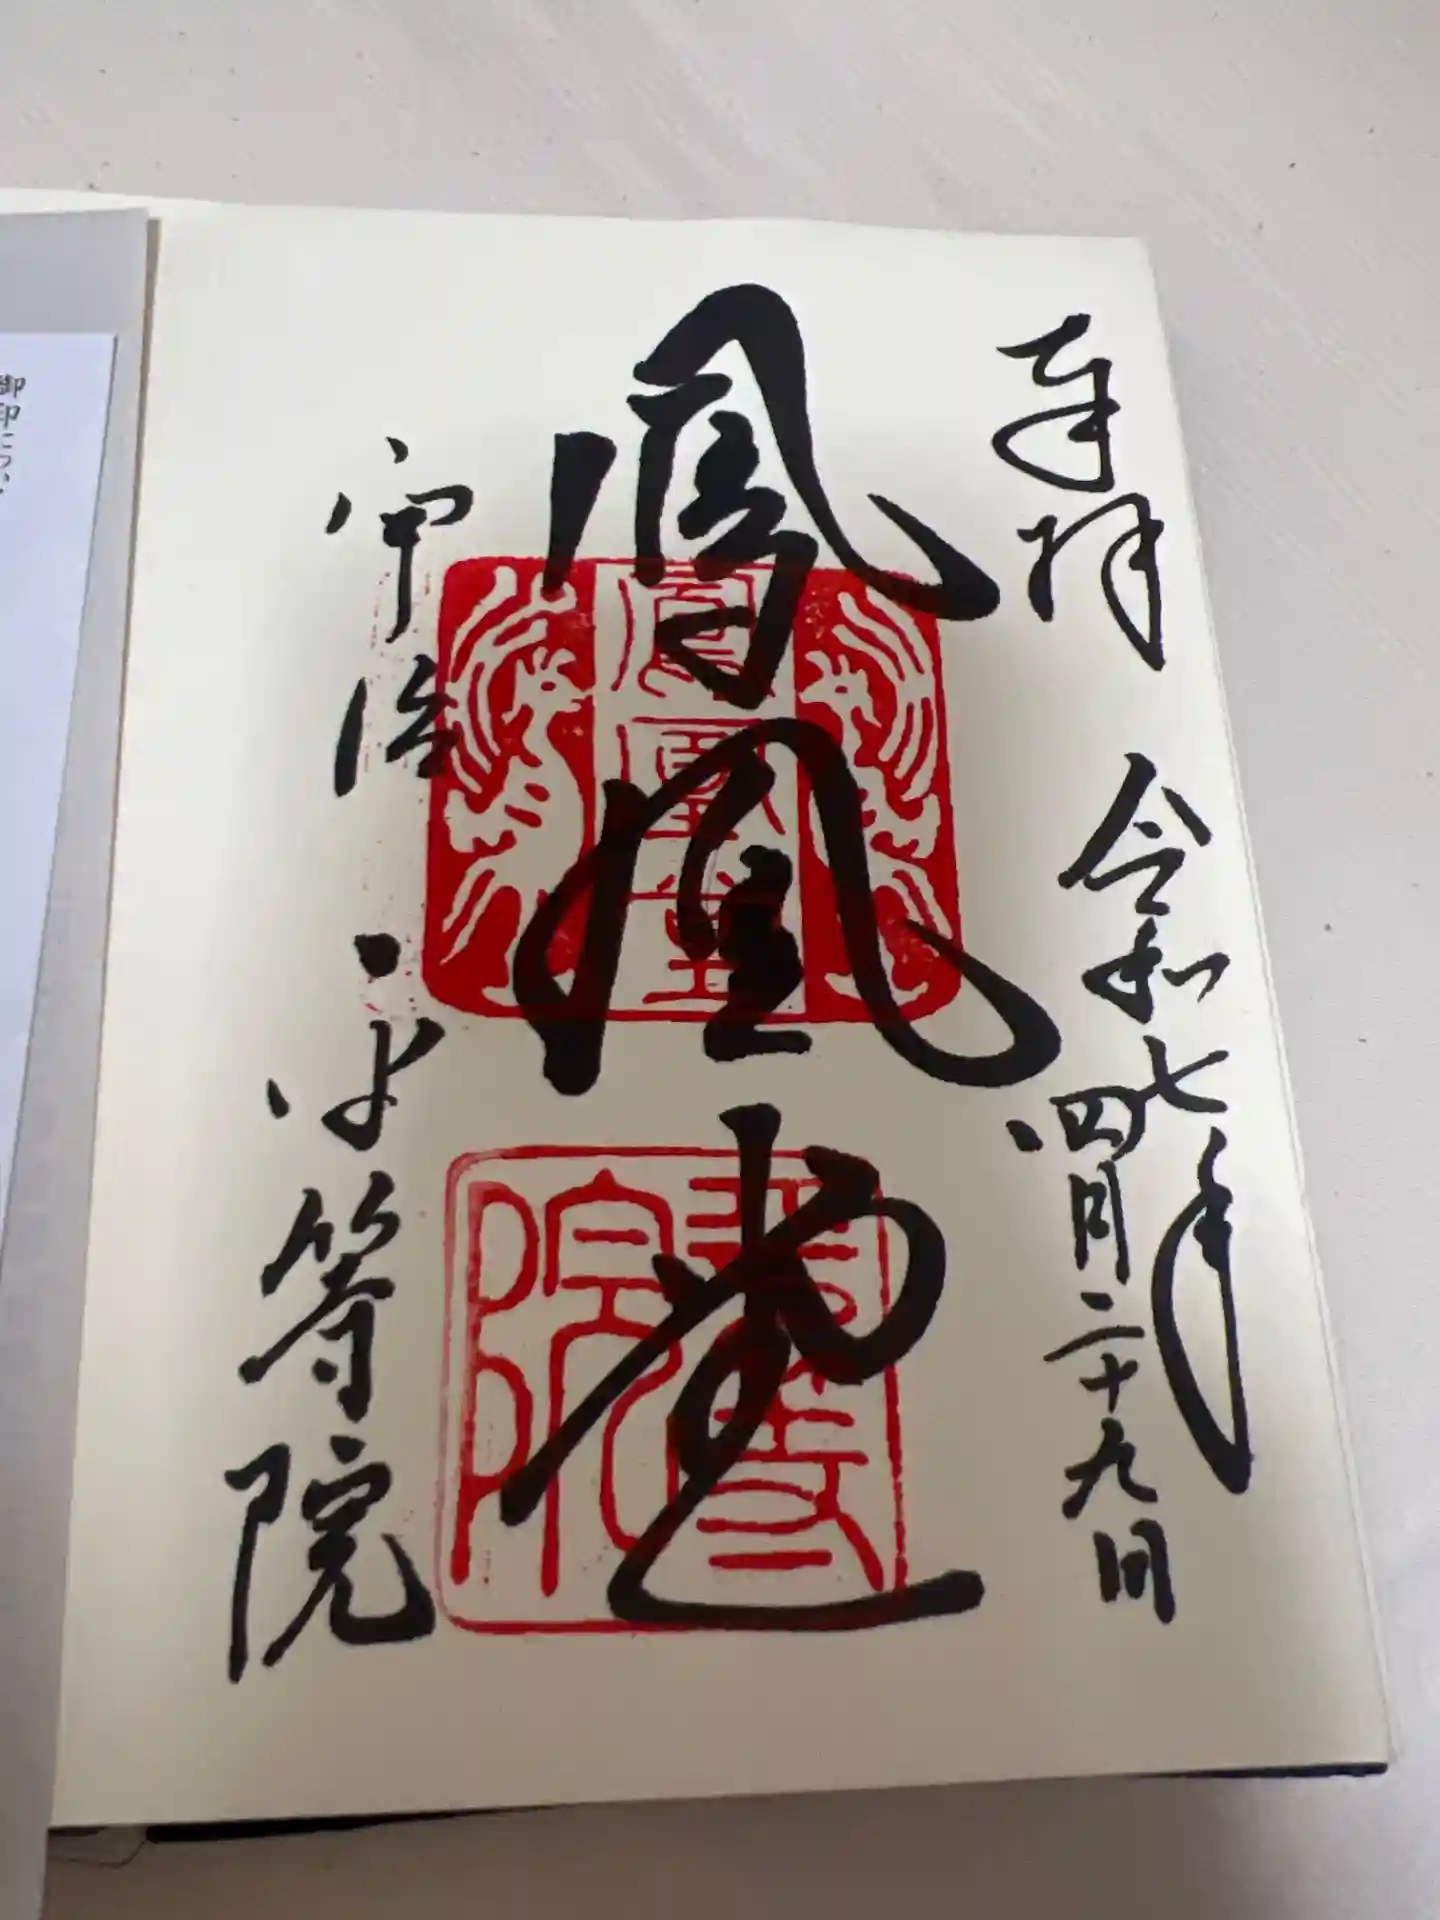 奉拝 令和七年
四月二十九日
鳳凰堂
宇治 平等院
鳳凰堂
平等院
御印につい